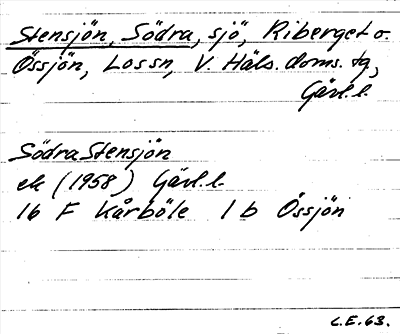 Stensjön, Södra, sjö, Riberget o.
Össjön, Los sn, V. Häls. doms. tg,
Gävl. l.
Södra Stensjön
ek (1958) Gävl. l.
16 F Kårböle 1 b Össjön
C.E. 63.